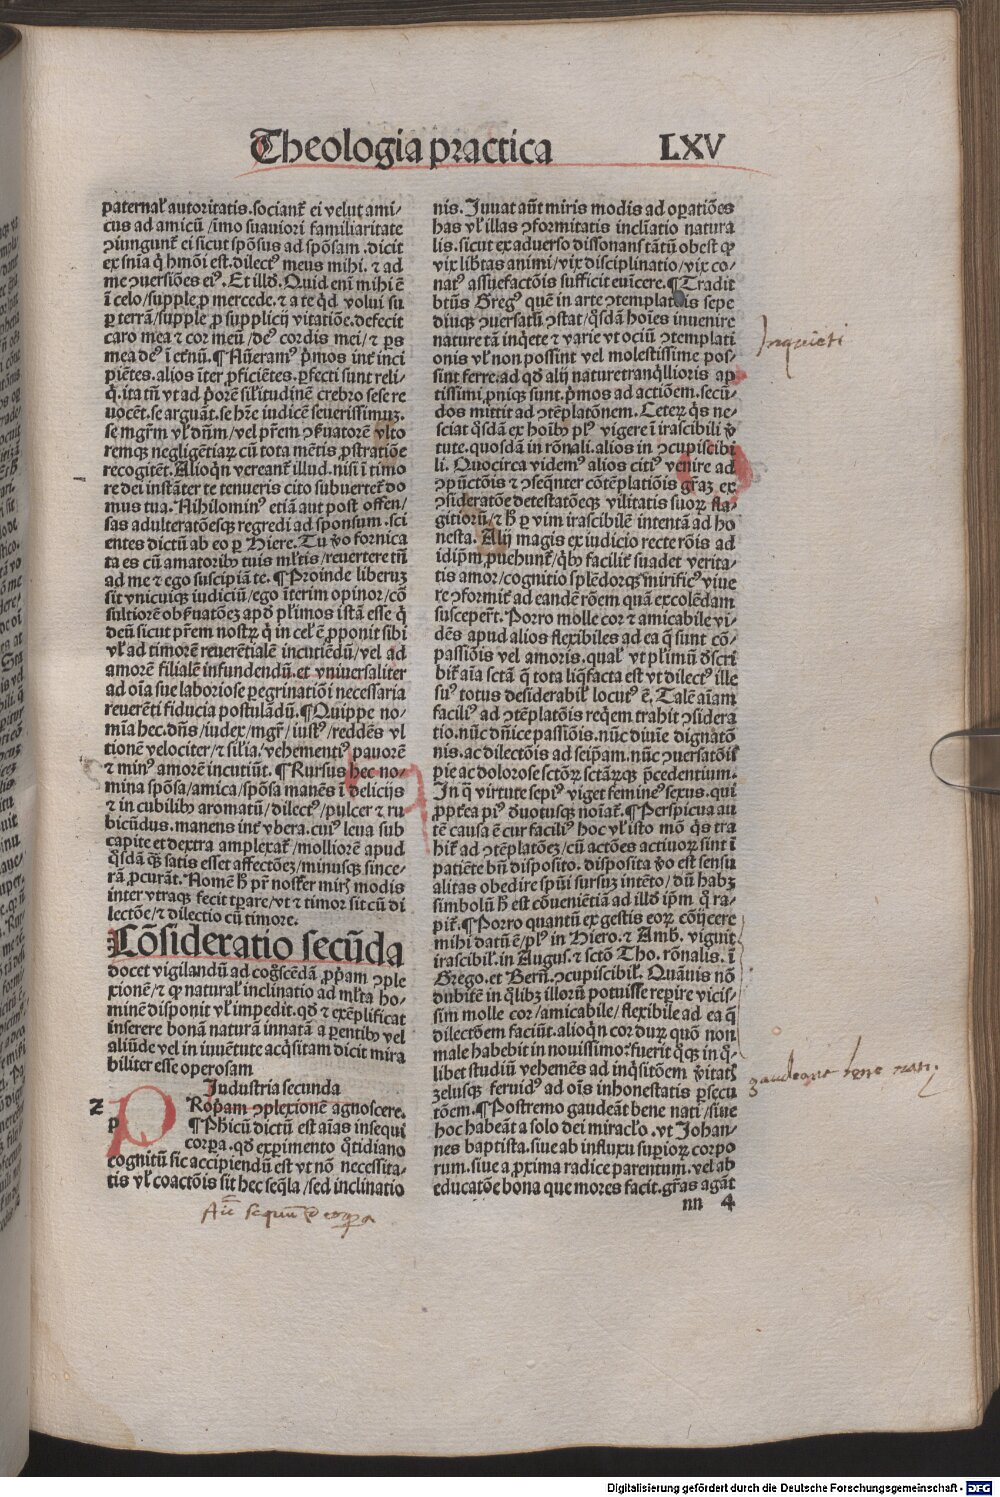 Theologia practica LXV
paternal autoritatis. sociant ei velut ami/
cus ad amicū/imo suauiori familiaritate
ꝯiungunt ei sicut spōsus ad spōsam. dicit
ex snia q̇ hmōi est. dilectꝰ meus mihi. ⁊ ad
me ꝯuersiões eiꝰ. Et illđ. Quid enī mihi ē
ī celo/supple ꝓ mercede. ⁊ a te qđ volui su
ꝑ terrā/supple ꝓ supplicij vitatiōe. defecit
caro mea ⁊ cor meū/deꝰ cordis mei/⁊ ꝑs
mea deꝰ ī eṫnū. ¶ Aūeramꝰ pͥmos inṫ inci
piētes. alios īter ꝓficiētes. ꝑfecti sunt reli/
q̇. ita tn̄ vt ad pͥorē silitudinē crebro sese re
uocēt. se arguāt. se hr̄e iudicē seuerissimuꝫ.
se mgr̄m vl̓ dn̄m/vel pr̄em ꝯßuatorē vlto
remqꝫ negligētiaꝝ cū tota mētis ꝓstratiōe
recogitēt. Alioqn̄ vereant̓ illud. nisi ī timo
re dei instāter te tenueris cito subuertet̓ do
mus tua. Nihilominꝰ etiā aut post offen/
sas adulteratōesqꝫ regredi ad sponsum. sci
entes dictū ab eo ꝑ Hiere. Tu v̊o fornica
ta es cū amatoribꝰ tuis ml̓tis/reuertere tn̄
ad me ⁊ ego suscipiā te. ¶ Proinde liberuꝫ
sit vnicuiqꝫ iudiciū/ego īterim opinor/cō
sultiorē obßuatōeꝫ apđ pl̓imos istā esse q̇
deū sicut pr̄em nostꝝ q̇ in cel̓ ē ꝓponit sibi
vl̓ ad timorē reuerētialē incutiēdū/vel ad
amorē filialē infundendū. et vniuersaliter
ad oīa sue laboriose ꝑegrinatiōi necessaria
reuerēti fiducia postulādū. ¶ Quippe no/
mīa hec. dn̄s/iudex/mgr̄/iustꝰ/reddēs vl
tionē velociter/⁊ silia. vehementiꝰ pauorē
⁊ minꝰ amorē incutiūt. ¶ Rursus hec no/
mina spōsa/amica/spōsa manēs ī delicijs
⁊ in cubilibꝰ aromatū/dilectꝰ/pulcer ⁊ ru
bicūdus. manens inṫ vbera. cuiꝰ leua sub
capite et dextra amplexat̓/molliorē apud
q̇sdā qͣꝫ satis esset affectōeꝫ/minusqꝫ since/
rā ꝓcurāt. Nomē ɧ pr̄ noster miris̓ modis
inter vtraqꝫ fecit tꝑare/vt ⁊ timor sit cū di
lectōe/⁊ dilectio cū timore.
Cōsideratio secūda
docet vigilandū ad cog̓scēdā ꝓpͥam ꝯple
xionē/⁊ ꝙ natural̓ inclinatio ad ml̓ta ho/
minē disponit vl̓ impedit. qđ ⁊ exēplificat
inserere bonā naturā innatā a parentibꝰ vel
aliūde vel in iuuētute acq̇sitam dicit mira
biliter esse operosam
Industria secunda
2 PRopͥam ꝯplexionē agnoscere.
p ¶ Phicū dictū est aīas insequi
corꝑa. qđ exꝑimento q̊tidiano
cognitū sic accipiendū est vt nō necessita/
tis vl̓ coactōis sit hec seq̄la/sed inclinatio
Aīe sequūt corpora
nis. Juuat aūt miris modis ad oꝑatiōes
has vl̓ illas ꝯformitatis inclīatio natura
lis. sicut ex aduerso dissonans tātū obest ꝙ
vix libtas animi/vix disciplinatio/vix co/
natꝰ assuefactōis sufficit euīcere. ¶ Tradit
btūs Gregꝰ quē in arte ꝯtemplatōis sepe
diuqꝫ ꝯuersatū ꝯstat/q̊sdā hoīes inuenire
nature tā inq̇ete ⁊ varie vt ociū ꝯtemplati
onis vl̓ non possint vel molestissime pos/
sint ferre. ad qđ alij nature tranq̇llioris ap
tissimi ꝓniqꝫ sunt. pͥmos ad actiōem. secū/
dos mittit ad ꝯtēplatōnem. Ceteꝝ q̇s ne/
sciat q̇sdā ex hoībꝰ plꝰ vigere ī irascibili v̊
tute. quosdā in rōnali. alios in ꝯcupiscibi
li. Quocirca videmꝰ alios citiꝰ venire ad
ꝯpūctōis ⁊ ꝯseq̄nter cōtēplatiōis gr̄aꝫ ex
ꝯsideratōe detestatōeqꝫ vilitatis suoꝝ fla/
gitioꝝ/⁊ ɧ ꝑ vim irascibilē intentā ad ho
nesta. Alij magis ex iudicio recte rōis ad
idip̄m ꝓuehunt̓/q̇bꝰ facilit̓ suadet verita/
tis amor/cognitio splēdorqꝫ mirificꝰ viue
re ꝯformit̓ ad eandē rōem quā excolēdam
susceperͥt. Porro molle cor ⁊ amicabile vi/
dēs apud alios flexibiles ad ea q̄ sunt cō/
passiōis vel amoris. qual̓ vt pl̓imū dscri
bit̓ aīa sctā q̄ tota liq̄facta est vt dilectꝰ ille
suꝰ totus desiderabil̓ locutꝰ ē. Talē aīam
faciliꝰ ad ꝯtēplatōis req̇em trahit ꝯsidera
tio. nūc dn̄ice passiōis. nūc diuīe dignatō
nis. ac dilectōis ad seip̄am. nūc ꝯuersatōis̓
pie ac dolorose sctōꝝ sctāꝝqꝫ p̄cedentium.
In q̄ virtute sepiꝰ viget femineꝰ sexus. qui
ꝓpt̓ea piꝰ duotusqꝫ noīat̓. ¶ Perspicua au
tē causa ē cur faciliꝰ hoc vl̓ isto mō q̇s tra
hit̓ ad ꝯtēplatōeꝫ/cū actōes actiuoꝝ sint ī
patiēte bn̄ disposito. disposita v̊o est sensu
alitas obedire spūi sursuꝫ intēto/dū habꝫ
simbolū ɧ est cōueniētiā ad illđ ip̄m q̇ ra/
pit̓. ¶ Porro quantū ex gestis eoꝝ cōij̄cere
mihi datū ē/plꝰ in Hiero. ⁊ Amb. viguit
irascibil̓. in Augus. ⁊ sctō Tho. rōnalis. ī
Grego. et Bern̄. ꝯcupiscibil̓. Quāuis nō
dubitē in q̇libꝫ illoꝝ potuisse reꝑire vicis/
sim molle cor/amicabile/flexibile ad ea q̄
dilectōem faciūt. alioqn̄ cor duꝝ quō non
male habebit in nouissimo? fuerit q̊qꝫ in q̊/
libet studiū vehemēs ad inq̇sitōem v̊itatꝭ
zelusqꝫ feruidꝰ ad oīs inhonestatis ꝑsecu
tōem. ¶ Postremo gaudeāt bene nati/siue
hoc habeāt a solo dei miraclo. vt Johan/
nes baptista. siue ab influxu suꝑioꝝ corpo
rum. siue a ꝓxima radice parentum. vel ab
educatōe bona que mores facit. gr̄as agāt
nn 4
Inquieti
gaudeant bene nati.
Digitalisierung gefördert durch die Deutsche Forschungsgemeinschaft - DFG